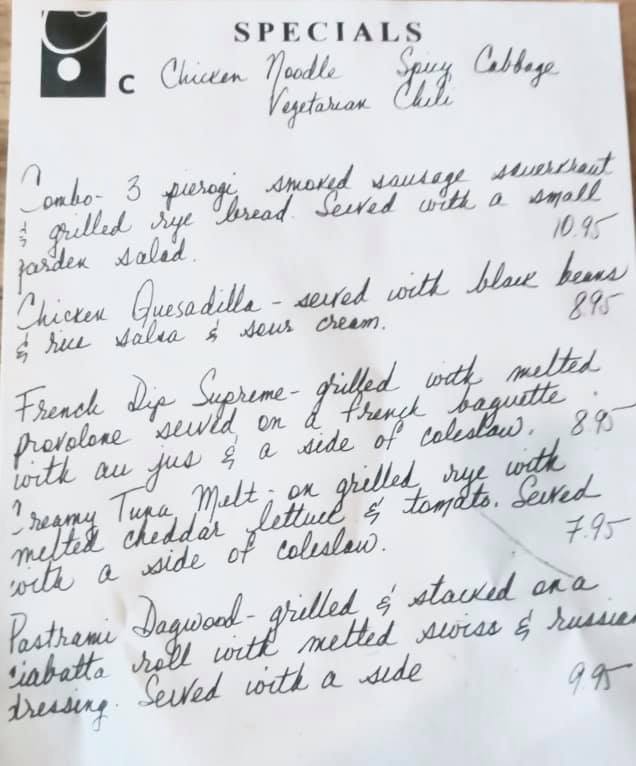 SPECIALS
C Chicken Noodle Spicy Cabbage
Vegetarian Chili
Combo- 3 pierogi smoked sausage sauerkraut
& grilled rye bread. Served with a small
garden salad. 10.95
Chicken Quesadilla - served with black beans
& rice salsa & sour cream. 8.95
French Dip Supreme- grilled with melted
provolone served on a french baguette
with au jus & a side of coleslaw. 8.95
Creamy Tuna Melt- on grilled rye with
melted cheddar lettuce & tomato. Served
with a side of coleslaw. 7.95
Pastrami Dagwood- grilled & stacked on a
ciabatta roll with melted swiss & russian
dressing. Served with a side 9.95